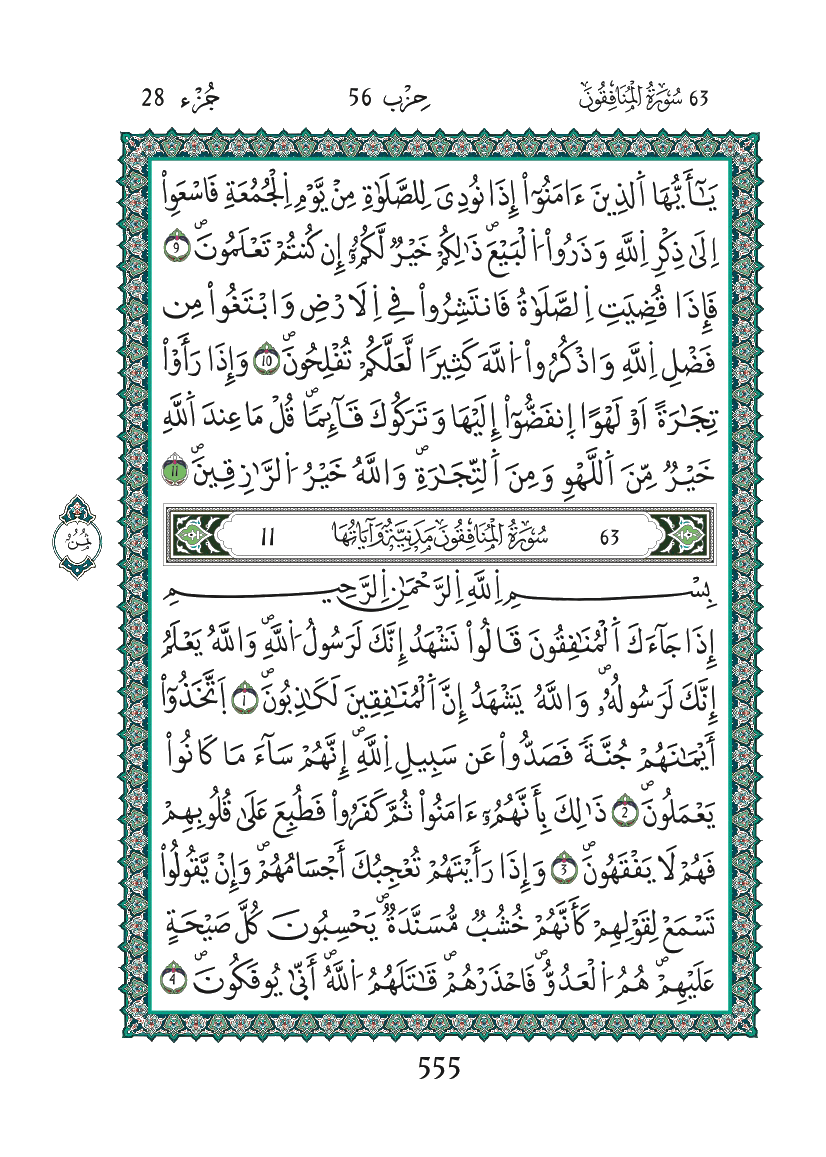 63 سُورَةُ الْمُنَافِقُونَ
حِزْب 56
جُزْء 28
يَٰٓأَيُّهَا اَ۬لذِينَ ءَامَنُوٓاْ إِذَا نُودِيَ لِلصَّلَوٰةِ مِنْ يَّوْمِ اِ۬لْجُمُعَةِ فَاسْعَوِاْ
اِلَىٰ ذِكْرِ اِ۬للَّهِ وَذَرُواْ اُ۬لْبَيْعَۖ ذَٰلِكُمْ خَيْرٞ لَّكُمُۥٓ إِن كُنتُمْ تَعْلَمُونَۖ 9
فَإِذَا قُضِيَتِ اِ۬لصَّلَوٰةُ فَانتَشِرُواْ فِے اِ۬لَارْضِ وَابْتَغُواْ مِن
فَضْلِ اِ۬للَّهِ وَاذْكُرُواْ اُ۬للَّهَ كَثِيرٗا لَّعَلَّكُمْ تُفْلِحُونَۖ 10 وَإِذَا رَأَوْاْ
تِجَٰرَةً اَوْ لَهْوًا اِ۪نفَضُّوٓاْ إِلَيْهَا وَتَرَكُوكَ قَآئِمٗاۖ قُلْ مَا عِندَ اَ۬للَّهِ
خَيْرٞ مِّنَ اَ۬للَّهْوِ وَمِنَ اَ۬لتِّجَٰرَةِۖ وَاللَّهُ خَيْرُ اُ۬لرَّٰزِقِينَۖ 11
63 سُورَةُ الْمُنَافِقُونَ مَدَنِيَّةٌ وَآيَاتُهَا 11
ثُمُنٌ
بِسْمِ اِ۬للَّهِ اِ۬لرَّحْمَٰنِ اِ۬لرَّحِيمِ
إِذَا جَآءَكَ اَ۬لْمُنَٰفِقُونَ قَالُواْ نَشْهَدُ إِنَّكَ لَرَسُولُ اُ۬للَّهِۖ وَاللَّهُ يَعْلَمُ
إِنَّكَ لَرَسُولُهُۥۖ وَاللَّهُ يَشْهَدُ إِنَّ اَ۬لْمُنَٰفِقِينَ لَكَٰذِبُونَۖ 1 اَ۪تَّخَذُوٓاْ
أَيْمَٰنَهُمْ جُنَّةٗ فَصَدُّواْ عَن سَبِيلِ اِ۬للَّهِۖ إِنَّهُمْ سَآءَ مَا كَانُواْ
يَعْمَلُونَۖ 2 ذَٰلِكَ بِأَنَّهُمُۥٓ ءَامَنُواْ ثُمَّ كَفَرُواْ فَطُبِعَ عَلَىٰ قُلُوبِهِمْ
فَهُمْ لَا يَفْقَهُونَۖ 3 وَإِذَا رَأَيْتَهُمْ تُعْجِبُكَ أَجْسَامُهُمْۖ وَإِنْ يَّقُولُواْ
تَسْمَعْ لِقَوْلِهِمْ كَأَنَّهُمْ خُشُبٞ مُّسَنَّدَةٞۖ يَحْسِبُونَ كُلَّ صَيْحَةٍ
عَلَيْهِمْۖ هُمُ اُ۬لْعَدُوُّۖ فَاحْذَرْهُمْۖ قَٰتَلَهُمُ اُ۬للَّهُۖ أَنّ۪ىٰ يُوفَكُونَۖ 4
555